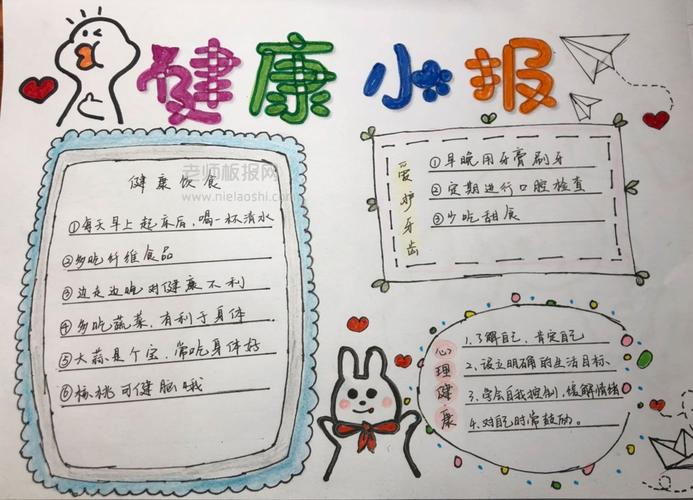 健康小报
老师板报网
www.nielaoshi.com
健康饮食
①每天早上起床后，喝一杯清水
②多吃纤维食品
③边走边吃对健康不利
④多吃蔬菜，有利于身体
⑤大蒜是个宝，常吃身体好
⑥核桃可健脑哦
爱护牙齿
①早晚用牙膏刷牙
②定期进行口腔检查
③少吃甜食
心理健康
1.了解自己，肯定自己
2.设立明确的生活目标
3.学会自我控制，缓解情绪
4.对自己时常鼓励。